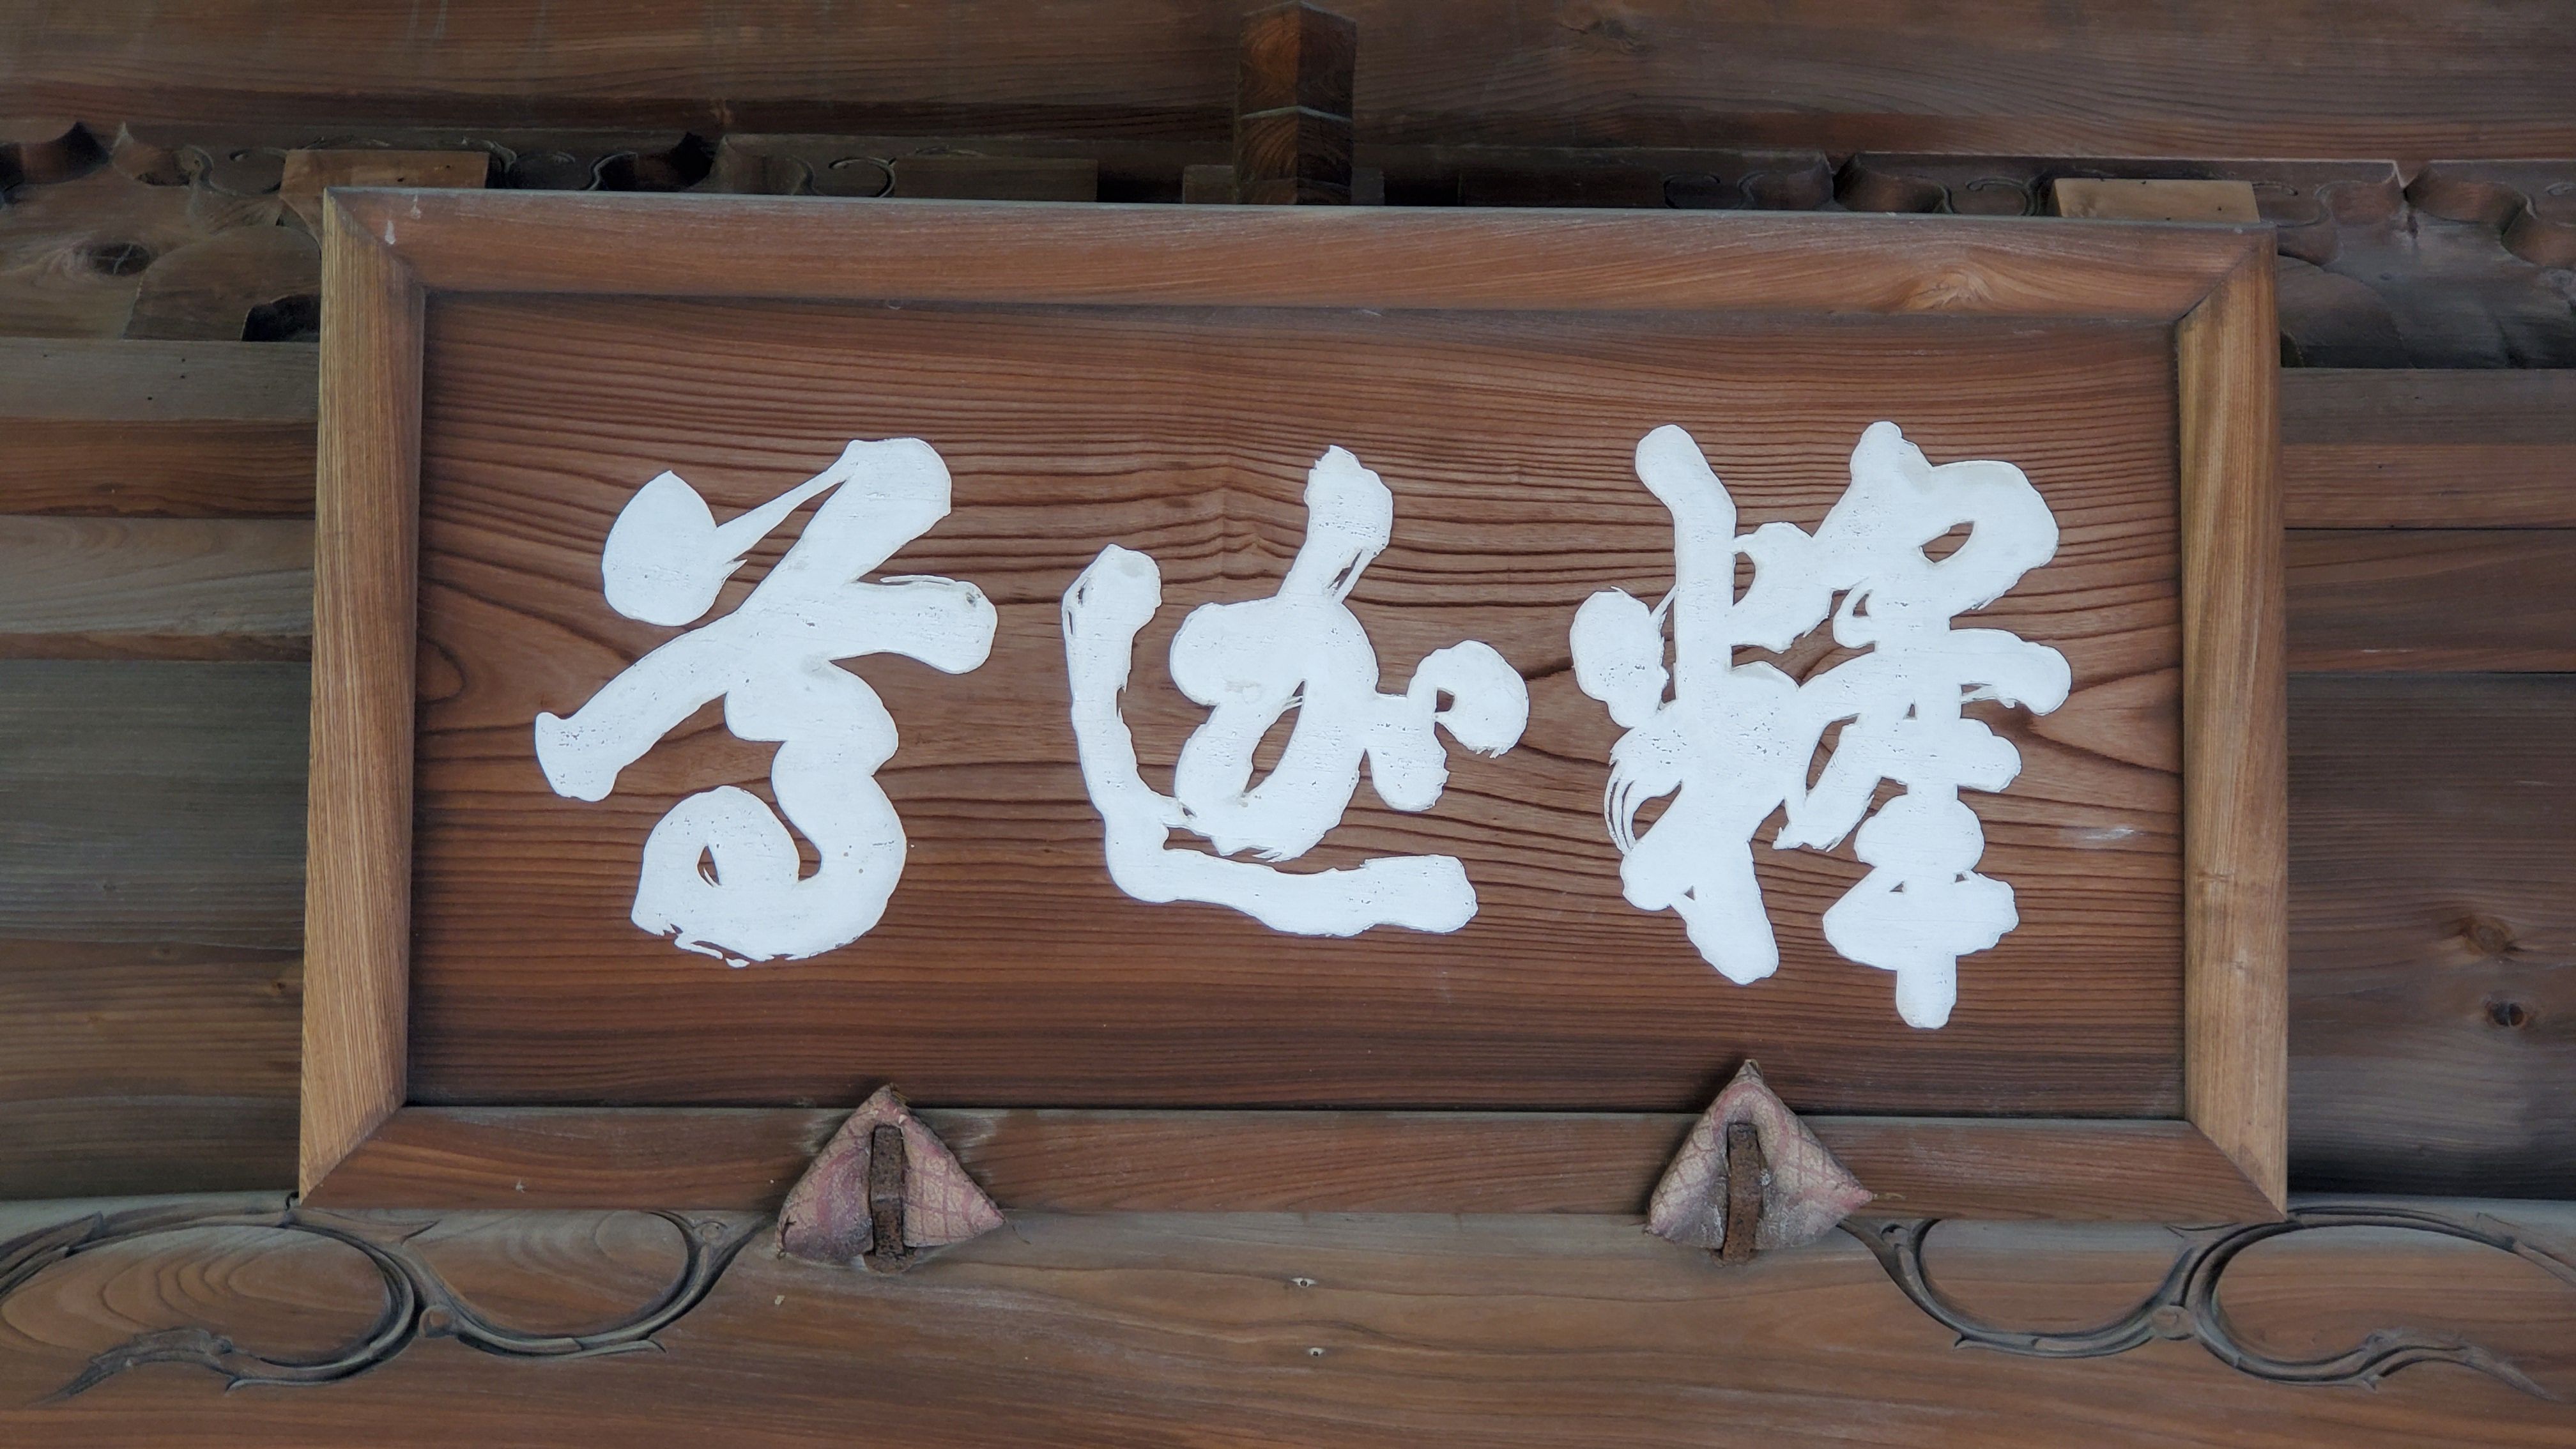 釋迦堂